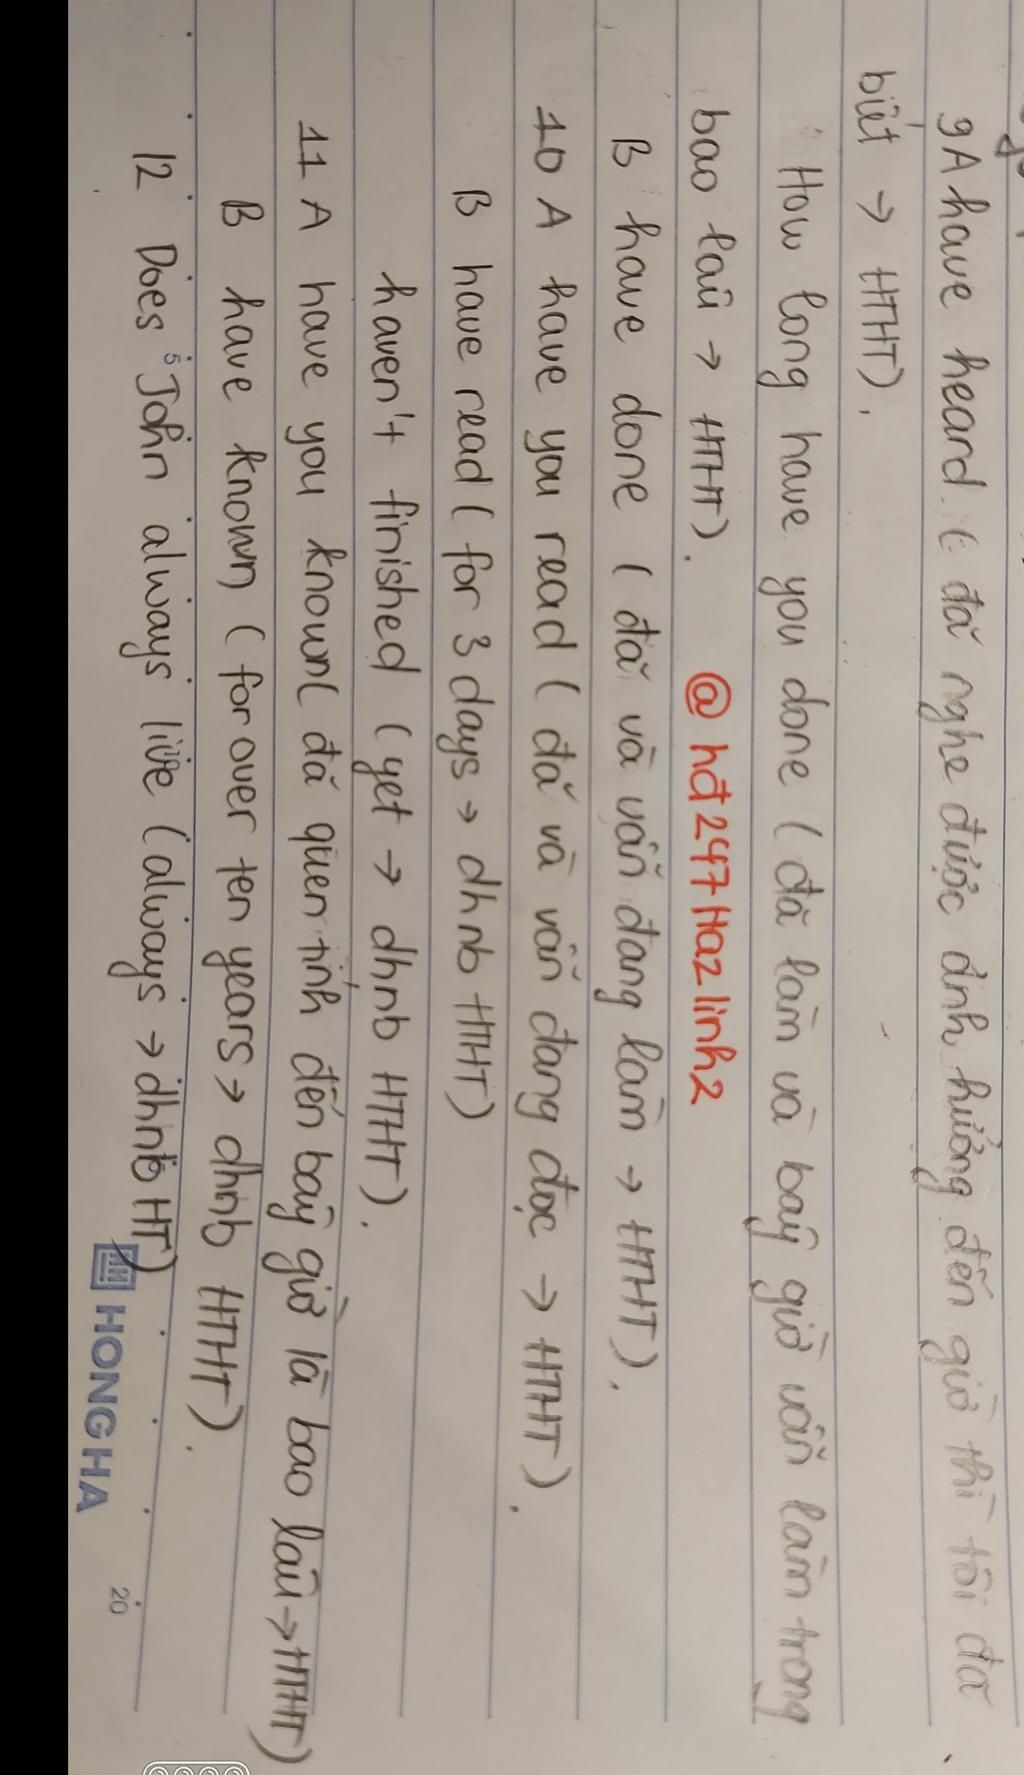 9 A have heard ( đã nghe được định hướng đến giờ thì tôi đã
biết → HTHT).
How long have you done ( đã làm và bây giờ vẫn làm trong
bao lâu → HTHT).
@ hđ247Ha2linh2
B have done ( đã và vẫn đang làm → HTHT).
10 A have you read ( đã và vẫn đang đọc → HTHT).
B have read ( for 3 days → dhnb HTHT)
haven't finished (yet → dhnb HTHT).
11 A have you known( đã quen tính đến bây giờ là bao lâu → HTHT)
B have known ( for over ten years > dhnb HTHT).
12 Does John always live (always → dhnb HT)
5
HONG HA
20